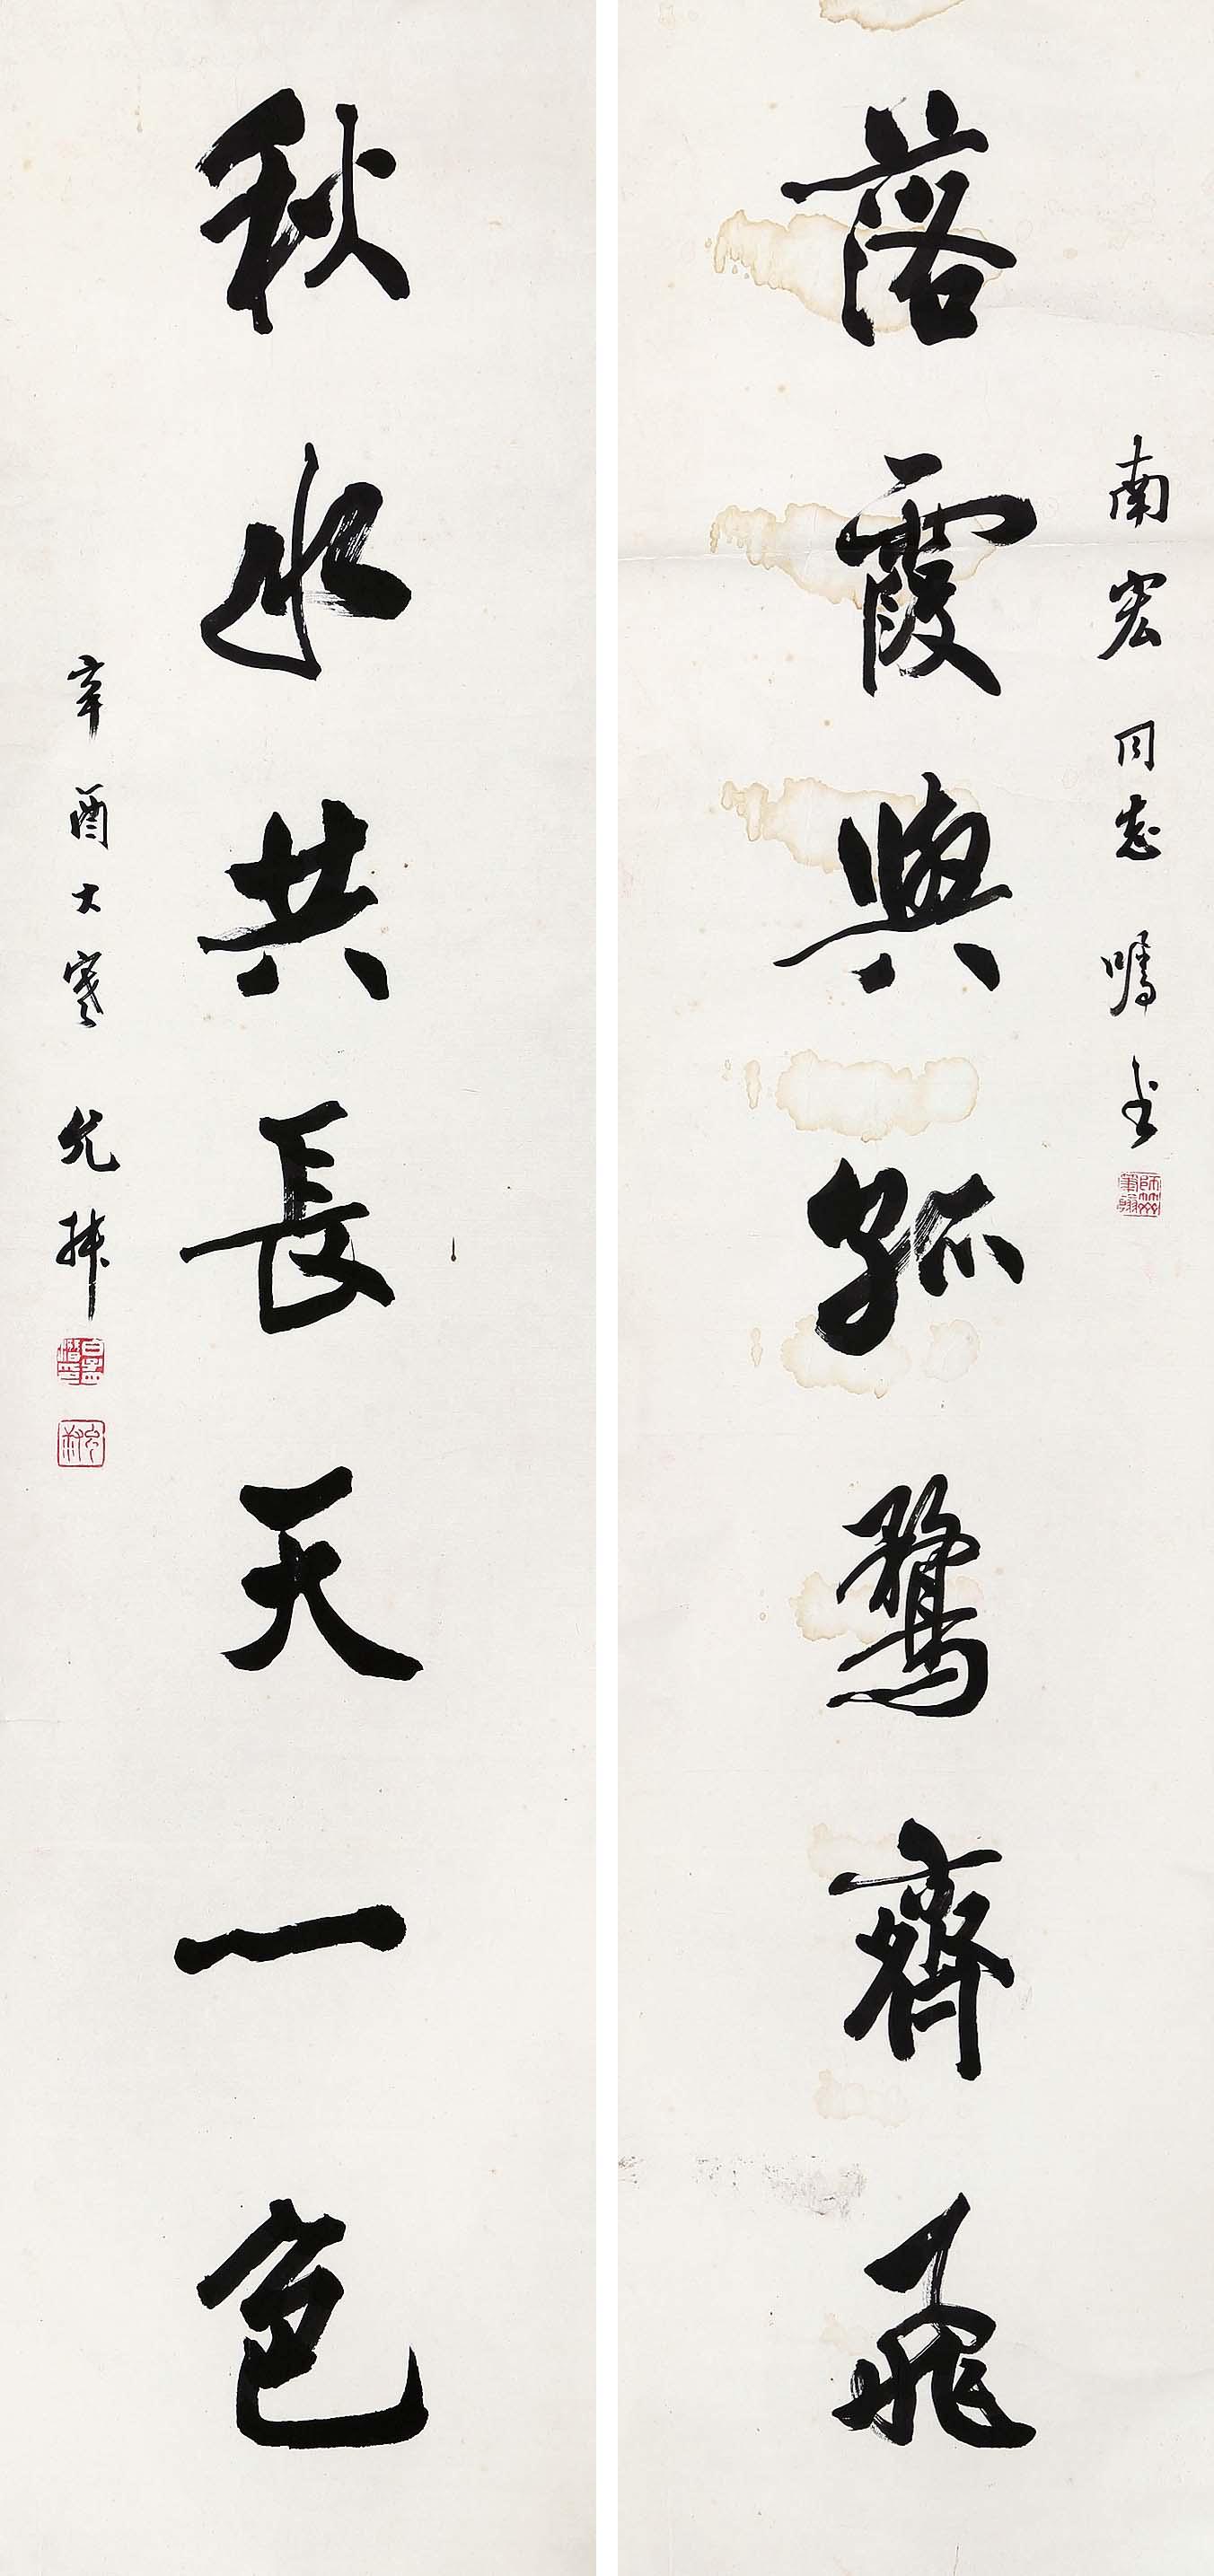 南宏同志嘱书
落霞與孤鶩齊飛
秋水共長天一色
辛酉大寒 允升